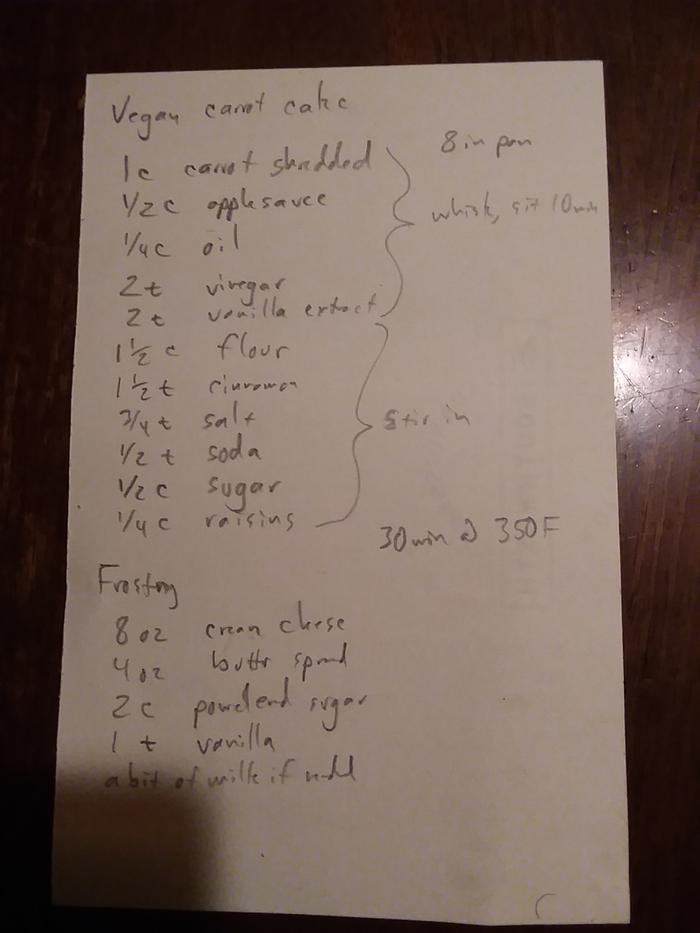 Vegan carrot cake
8 in pan
1c carrot shredded
1/2 c applesauce
whisk, sit 10 min
1/4 c oil
2 t vinegar
2 t vanilla extract
1 1/2 c flour
1 1/2 t cinnamon
3/4 t salt
stir in
1/2 t soda
1/2 c sugar
1/4 c raisins
30 min @ 350F
Frosting
8 oz cream cheese
4 oz buttr spread
2 c powdered sugar
1 t vanilla
a bit of milk if